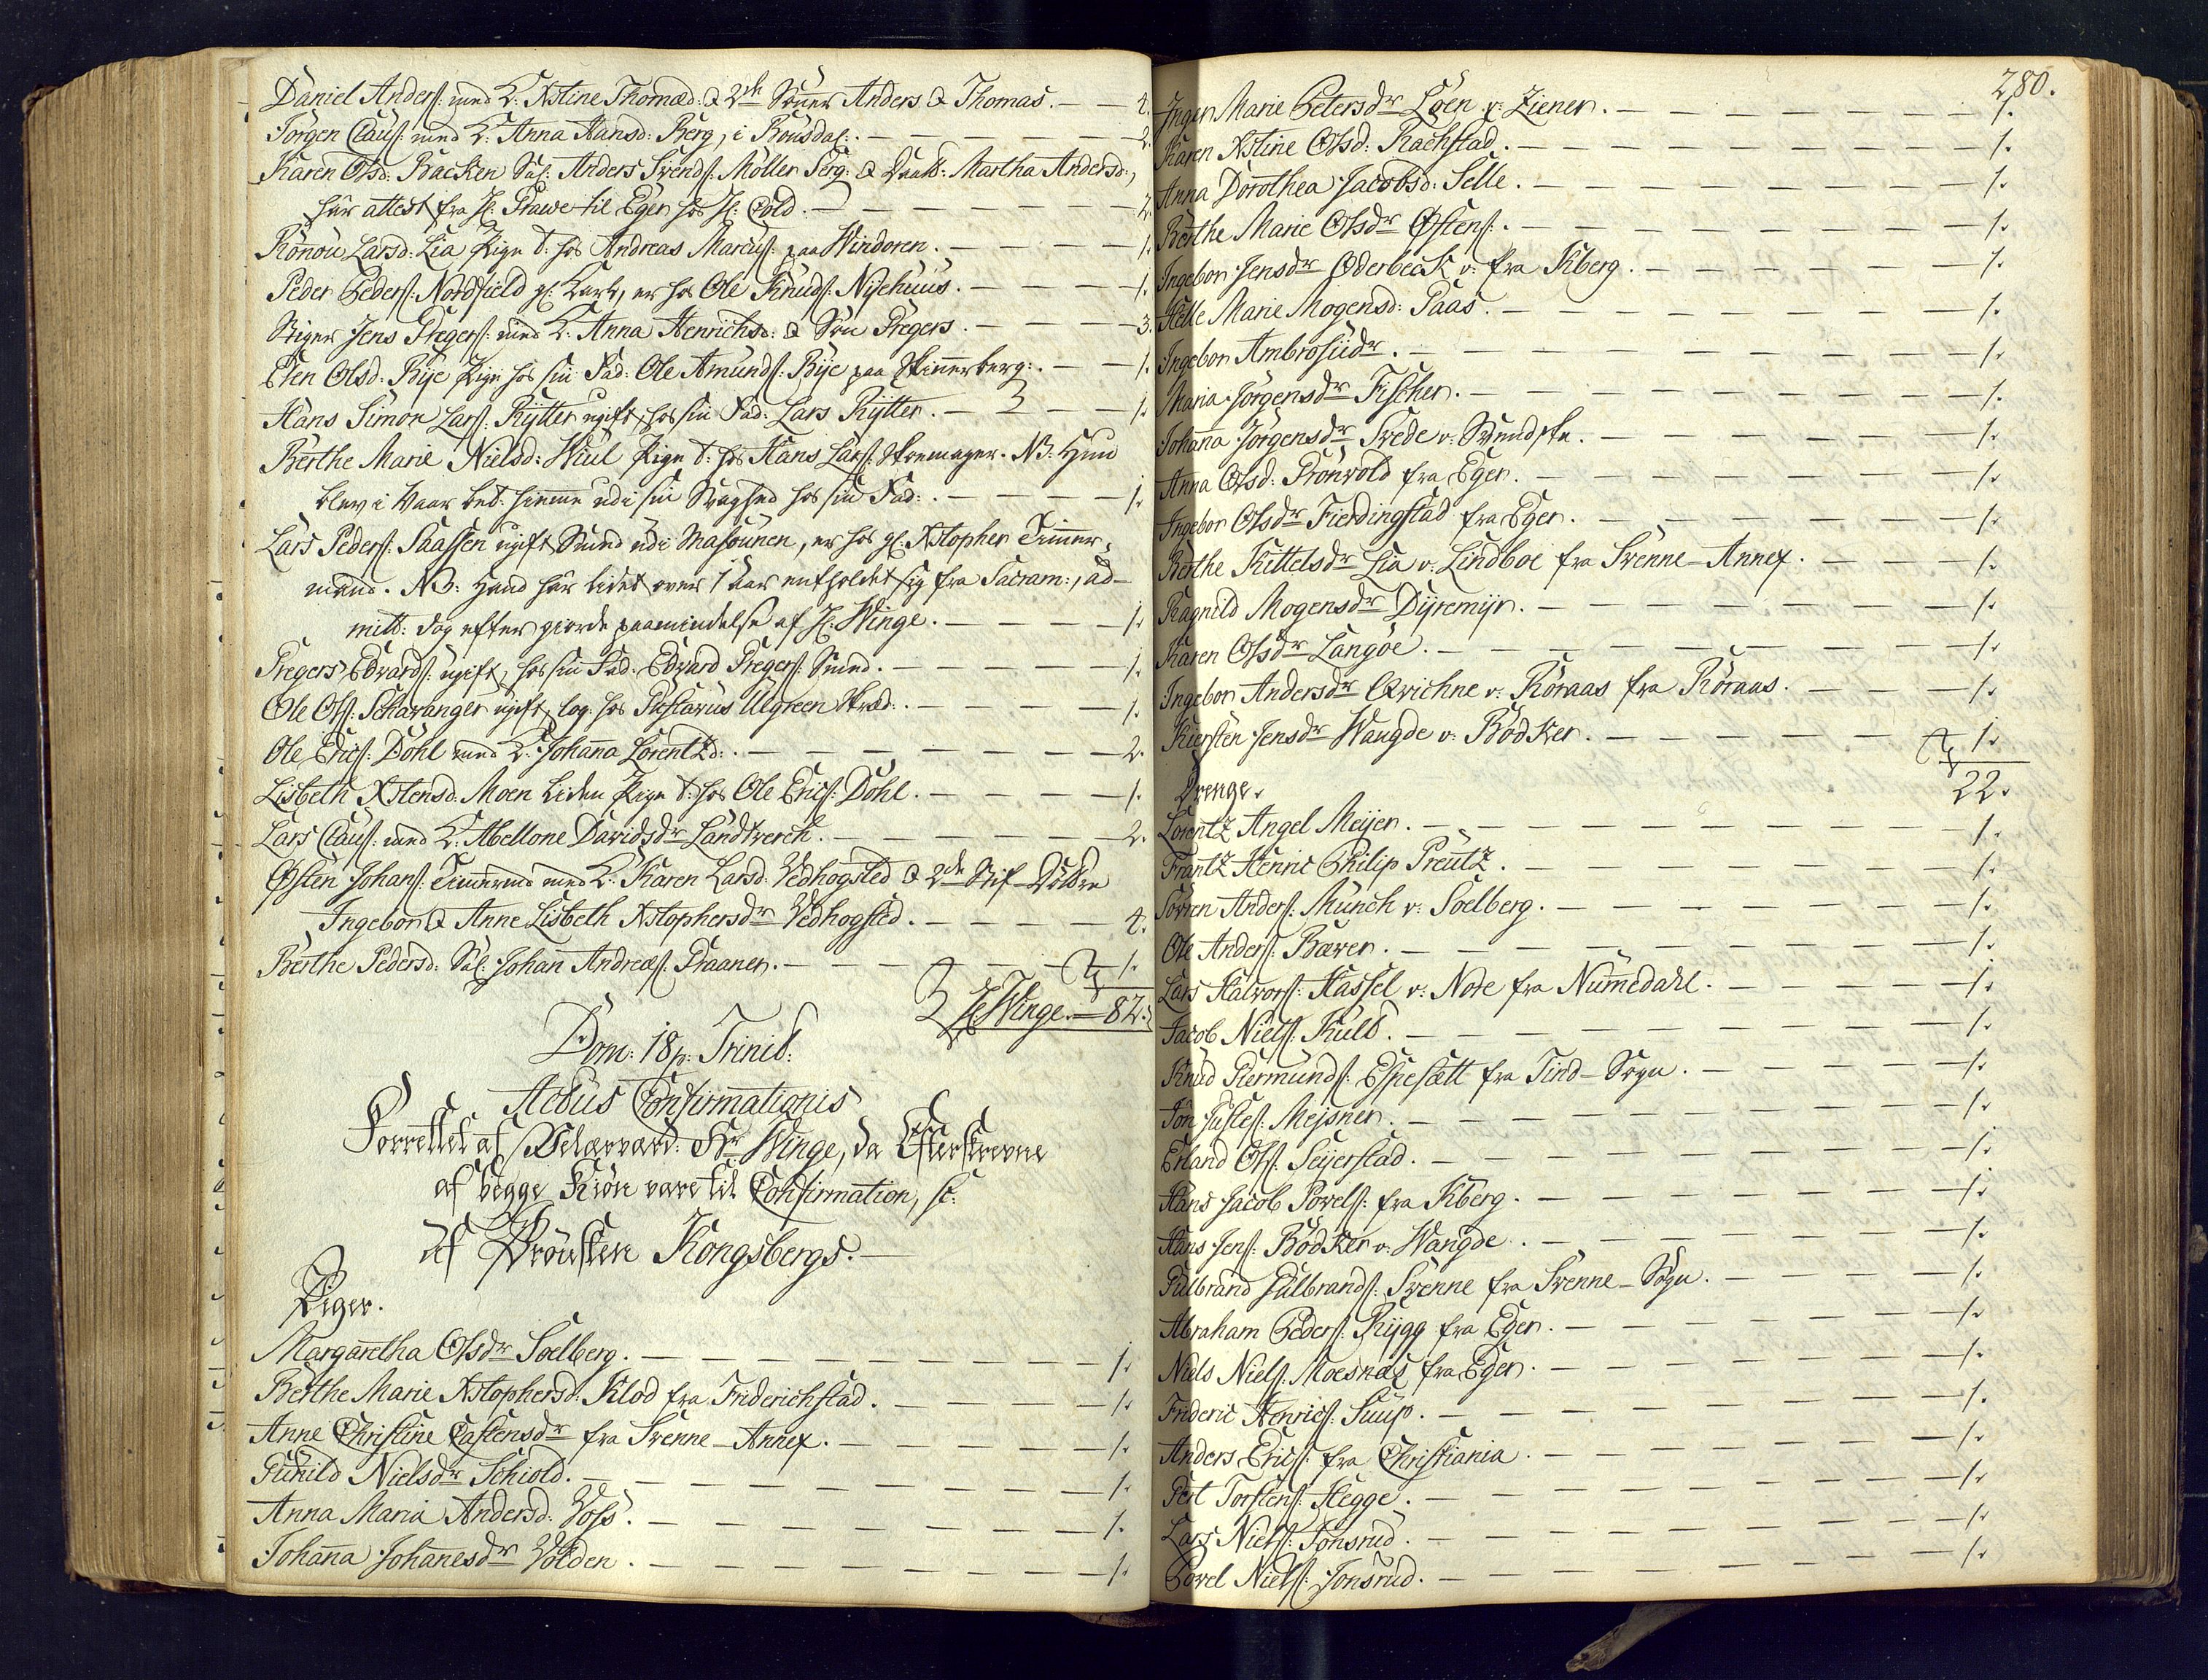 Daniel Anders: med K: Kstine Thomæd: & 2de Sönner Anders & Thomas. — — 4.
Jörgen Claus: med K: Anna Hansd: Berg, i — — 2.
Karen Olsd: Backen Sal: Anders Svends: Möller Serg: & Daatt: Martha Andersd:,
har attest fra Hr: til Eger hos Hr: Cold. — — 2.
Rönou Larsd: Lia Pige t: hos Andreas Marcus: paa Vindoren. — — 1.
Peder Peders: Nordfield gl: Karl, er hos Ole Knuds: Nijehuus. — — 1.
Stiger Jens Gregers: med K: Anna Henrichsd: & Sön Gregers. — — 3.
Elen Olsd: Bije Pige hos sin Fad: Ole Amunds: Bije paa Skinnerberg:. — — 1.
Hans Simon Lars: Rytter ugift, hos sin Fad: Lars Rytter. — — 1.
Berthe Marie Nielsd: Wiul Pige t: hos Hans Lars: Skomager. NB: Hun
blev i Vaar bet: hiemme udi sin Svaghed hos sin Fad:. — — 1.
Lars Peders: Saassen ugift Smed udi Masounen, er hos gl: Kstopher Timmer-
mand. NB: Hand har lidet over 1 Aar entholdet sig fra Sacram:, ad-
mitt: dog efter giorde paamindelse af Hr: Winge. — — 1.
Gregers Edvards: ugift, hos sin Fad: Edvard Gregers: Smed. — — 1.
Ole Ols: Schavanger ugift, log: hos Gustavus Ulgreen Skræd:. — — 1.
Ole Erics: Dohl med K: Johanna Lorentzd:. — — 2.
Lisbeth Kstensd: Moen liden Pige t: hos Ole Erics: Dohl. — — 1.
Lars Claus: med K: Abellone Davidsdr Landtverch. — — 2.
Østen Johans: Timmermd med K: Karen Larsd: Vedhogsted & 2de Stif-Döttre
Ingebor & Anne Lisbeth Kstophersdr Vedhogsted. — — 4.
Berthe Pedersd: Sal: Johan Andreæs: Graaner. — — 1.
Hr: Winge. — 82.
Dom: 18 p: Trinit:
Actus Confirmationis
Forrettet af Velærværd: Hr Winge, da Efterskrevne
af begge Kiön vare til Confirmation, sc:
Af Provstie Kongsbergs. —
Piger.
Margaretha Olsdr Soelberg. — — 1.
Berthe Marie Kstophersd: Klod fra Friderichstad. — — 1.
Anne Christine Castensdr fra Svenne-Annex. — — 1.
Gunild Nielsdr Schiold. — — 1.
Anna Maria Andersd: Voss. — — 1.
Johanna Johanesdr Volden. — — 1.
280.
Inger Marie Petersdr Loen v: Ziener. — — 1.
Karen Kstine Olsd: Rachstad. — — 1.
Anna Dorothea Jacobsd: Selle. — — 1.
Berthe Marie Olsdr Østens:. — — 1.
Ingebor Jensdr Oderbeck v: fra Kberg. — — 1.
Helle Marie Mogensd: Paas. — — 1.
Ingebor Ambrosiidr. — — 1.
Maria Jörgensdr Fischer. — — 1.
Johanna Jörgensdr Svede v: Svendske. — — 1.
Anna Olsd: Grönvold fra Eger. — — 1.
Ingebor Olsdr Fierdingstad fra Eger. — — 1.
Berthe Kittelsdr Lia v: Lindboe fra Svenne-Annex. — — 1.
Ragnild Mogensdr Dijremijr. — — 1.
Karen Olsdr Langöe. — — 1.
Ingebor Andersdr Qvichne v: Röraas fra Röraas. — — 1.
Kiersten Jensdr Wangde v: Bödker. — — 1.
22.
Drenge.
Lorentz Angel Meijer. — — 1.
Frantz Henric Philip Preutz. — — 1.
Sörren Anders: Münch v: Soelberg. — — 1.
Ole Anders: Bæver. — — 1.
Lars Halvors: Hassel v: Nore fra Numedahl. — — 1.
Jacob Niels: Kuld. — — 1.
Knud Germunds: Espesætt fra Tind-Sogn. — — 1.
Jon Justes: Mejsner. — — 1.
Erland Ols: Seijerstad. — — 1.
Hans Jacob Povels: fra Kberg. — — 1.
Hans Jens: Bödker v: Wangde. — — 1.
Gulbrand Gulbrands: Svenne fra Svenne-Sogn. — — 1.
Abraham Peders: Rygg fra Eger. — — 1.
Niels Niels: Moesnæs fra Eger. — — 1.
Frideric Henrics: Suup. — — 1.
Anders Erics: fra Christiania. — — 1.
Gert Torstens: Hegge. — — 1.
Lars Niels: Jonsrud. — — 1.
Povel Niels: Jonsrud. — — 1.